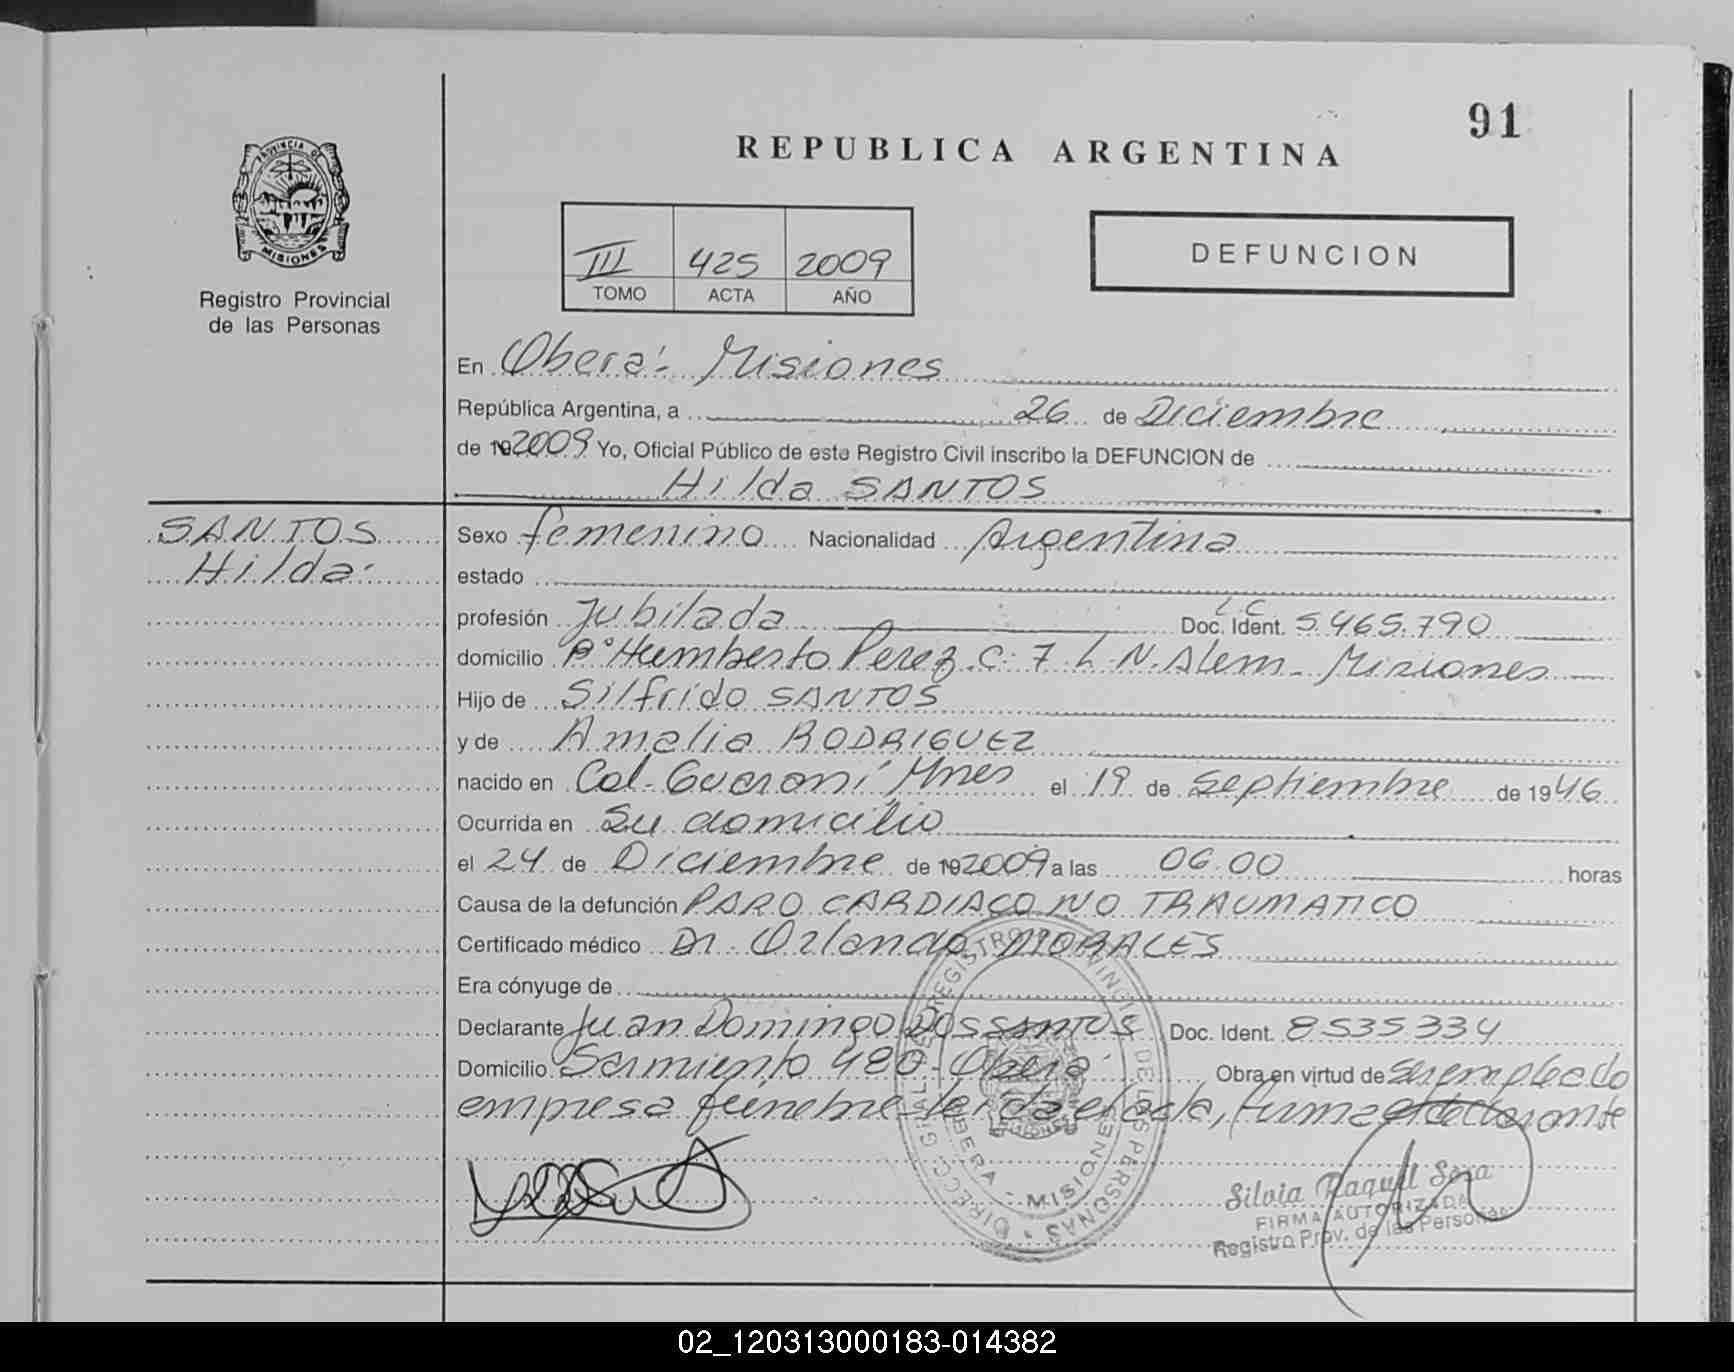 91
REPUBLICA ARGENTINA
PROVINCIA DE
MISIONES
Registro Provincial
de las Personas
III 425 2009
TOMO ACTA AÑO
DEFUNCION
En Oberá - Misiones
República Argentina, a 26 de Diciembre
de 192009 Yo, Oficial Público de este Registro Civil inscribo la DEFUNCION de
Hilda SANTOS
SANTOS
Hilda.
Sexo femenino Nacionalidad Argentina
estado
profesión Jubilada Doc. Ident. L C 5.465.790
domicilio Bº Humberto Perez C: 7 L. N. Alem - Misiones
Hijo de Silfrido SANTOS
y de Amalia RODRIGUEZ
nacido en Col. Guaraní Mnes el 19 de Septiembre de 1946
Ocurrida en Su domicilio
el 24 de Diciembre de 192009 a las 06.00 horas
Causa de la defunción PARO CARDIACO NO TRAUMATICO
Certificado médico Dr. Orlando MORALES
Era cónyuge de
Declarante Juan Domingo DOS SANTOS Doc. Ident. 8535334
Domicilio Sarmiento 480 - Oberá Obra en virtud de ser empleado
empresa fúnebre leida el acta, firma el declarante
DIRECC. GRAL. DE REGISTRO PROVINCIAL DE LAS PERSONAS
OBERA - MISIONES
Silvia Raquel Sosa
FIRMA AUTORIZADA
Registro Prov. de las Personas
02_120313000183-014382